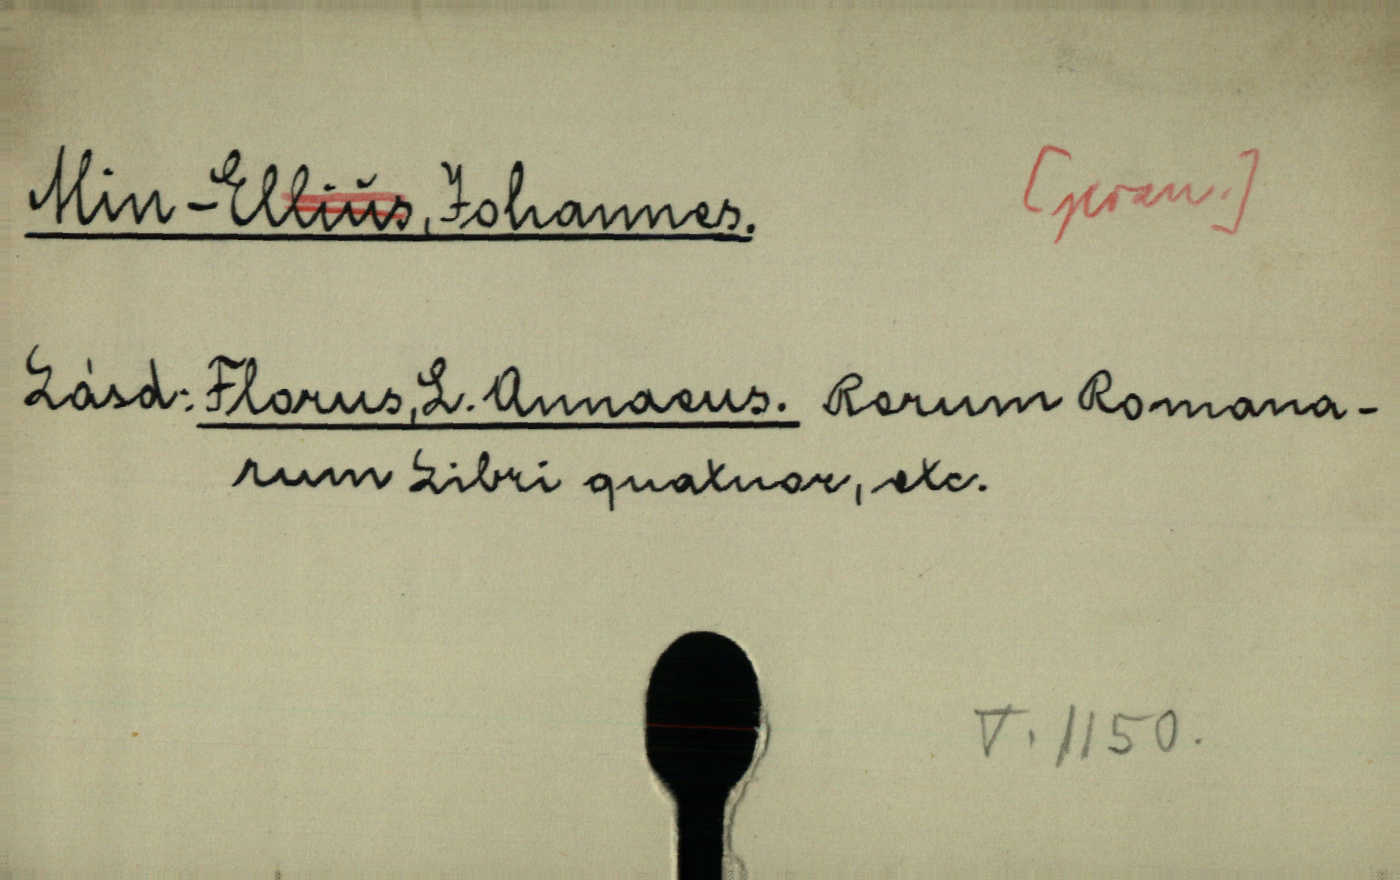 Min-Elliŭs, Johannes. [pozn.]
Lásd: Florus, L. Annaeus. Rerum Romana-
rum Libri quatuor, etc.
V. 1150.